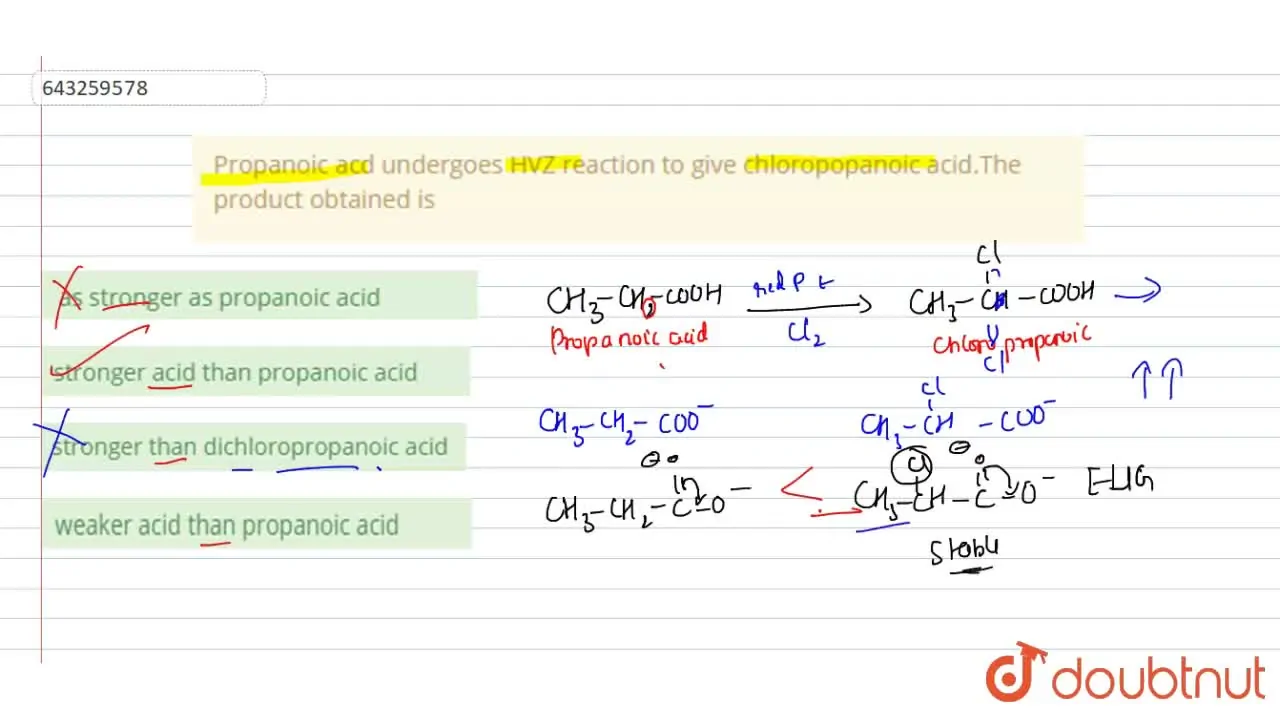 643259578
Propanoic acd undergoes HVZ reaction to give chloropopanoic acid.The
product obtained is
as stronger as propanoic acid
stronger acid than propanoic acid
stronger than dichloropropanoic acid
weaker acid than propanoic acid
Cl
CH3-CH2-COOH
red P +
Cl2
CH3-CH-COOH
Propanoic acid
Chloro propanoic
Cl
Cl
CH3-CH2-COO-
CH3-CH-COO-
Cl
CH3-CH2-C=O-
<
CH3-CH-C=O-
Stable
doubtnut